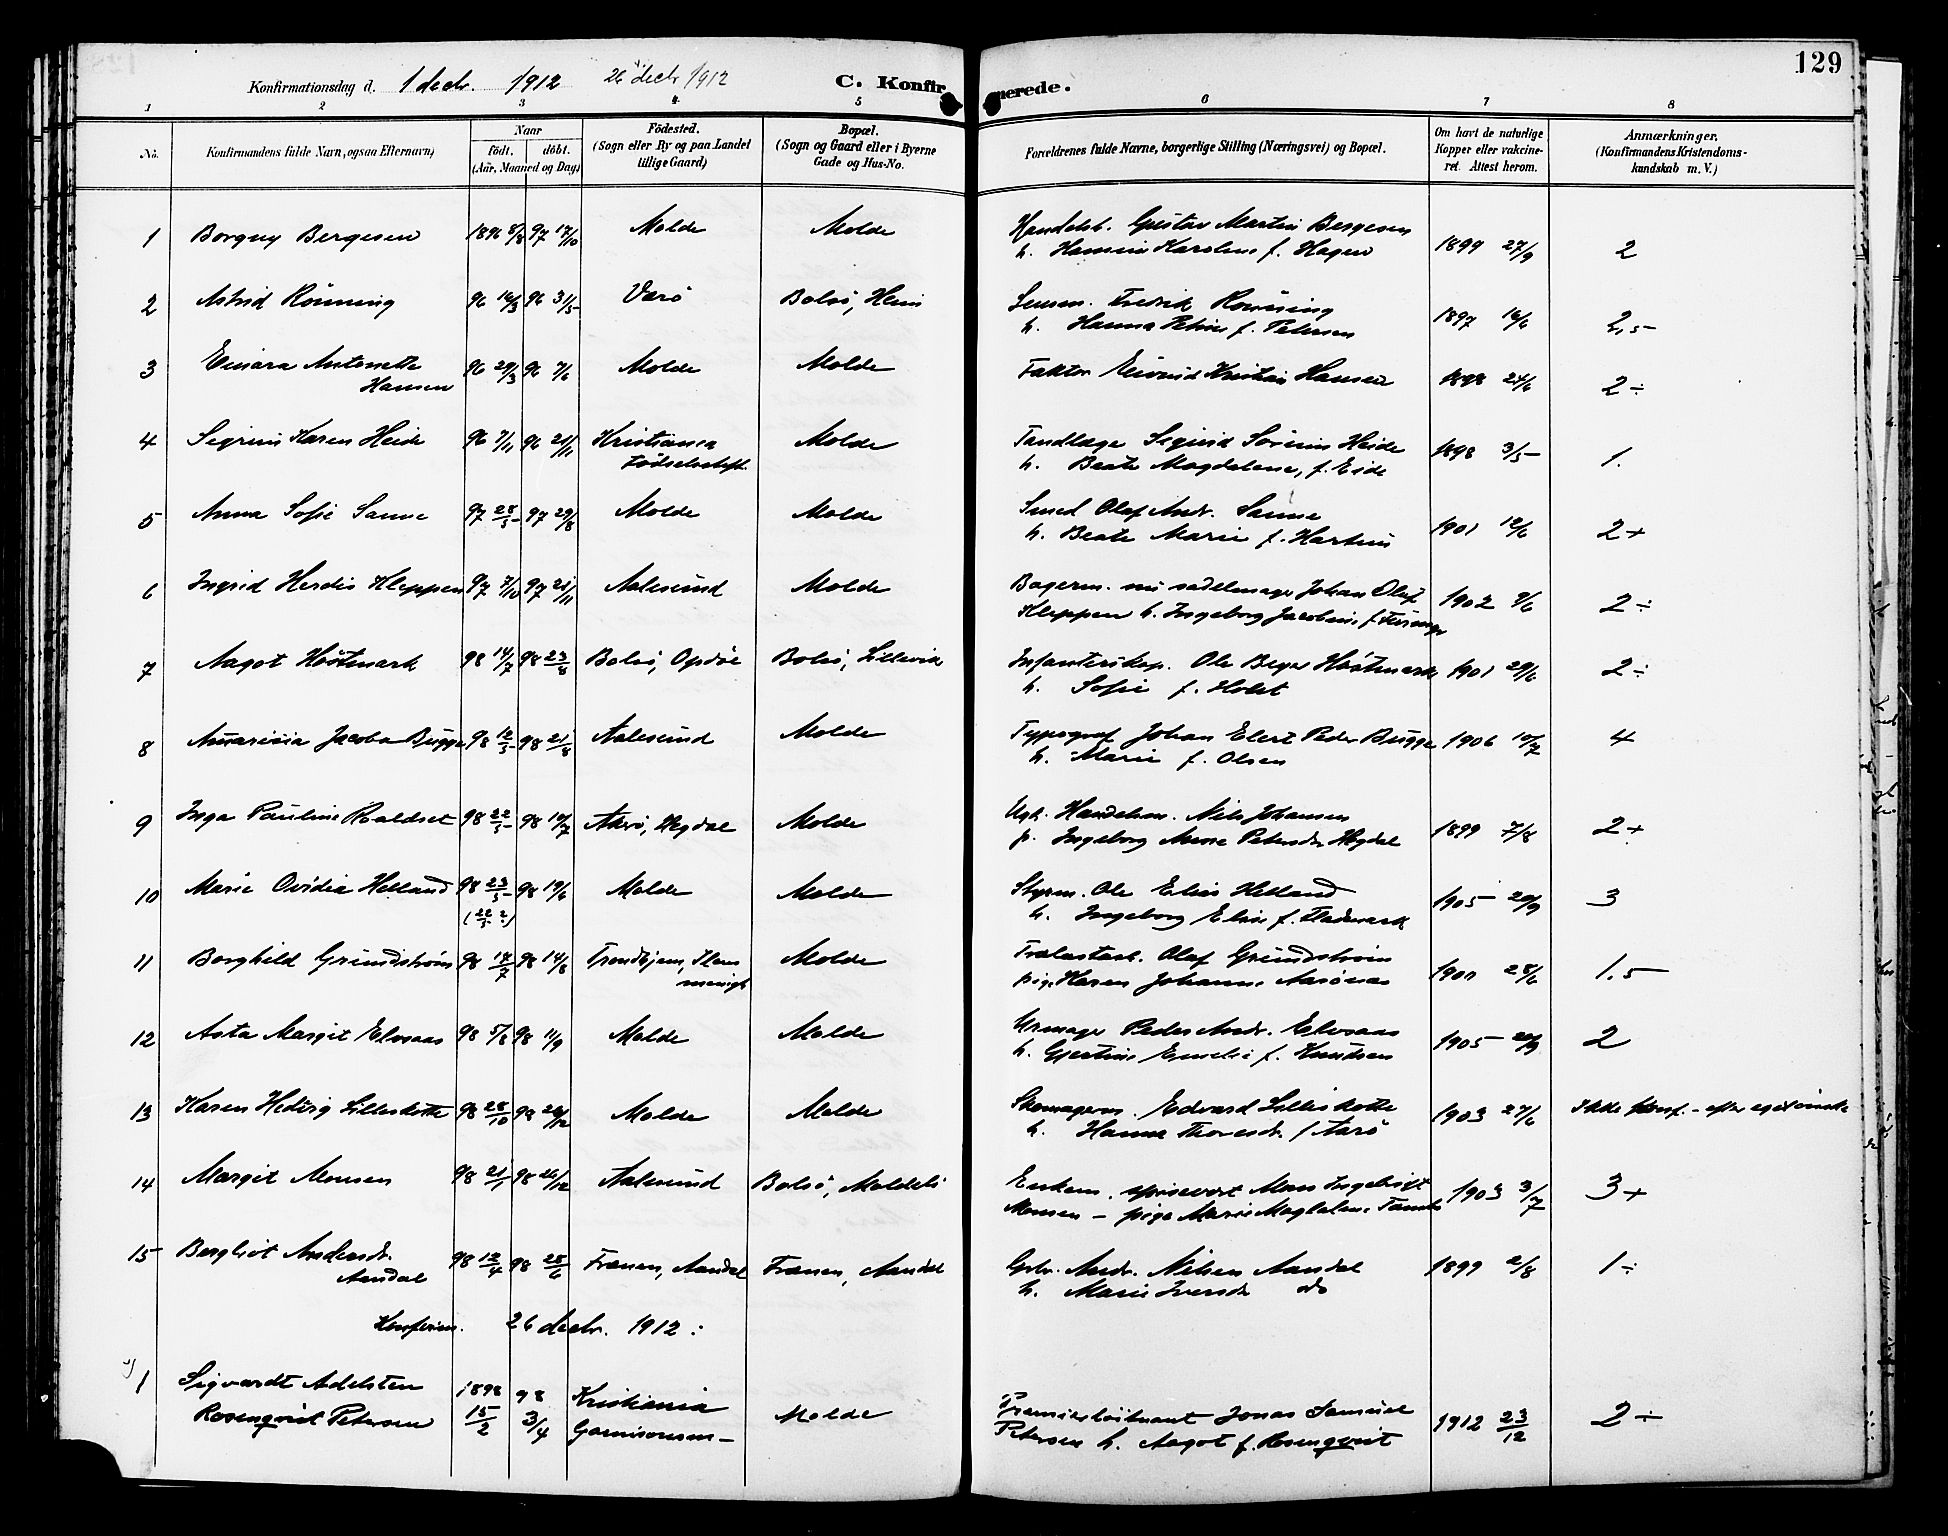 129
Konfirmationsdag d. 1 decbr. 1912 26 decbr 1912 C. Konfir merede.
1 2 3 4 5 6 7 8
No.
Konfirmandens fulde Navn, ogsaa Efternavn)
Naar
født. døbt.
(Aar, Maaned og Dag)
Fødested.
(Sogn eller By og paa Landet
tillige Gaard)
Bopæl.
(Sogn og Gaard eller i Byerne
Gade og Hus-No.
Forældrenes fulde Navne, borgerlige Stilling (Næringsvei) og Bopæl.
Om havt de naturlige
Kopper eller vakcine-
ret. Attest herom.
Anmærkninger.
(Konfirmandens Kristendoms-
kundskab m. V.)
1 Borgny Bergesen 1896 8/8 97 17/10 Molde Molde Handelsb. Gustav Martin Bergesen 1899 27/9 2
h. Karoline f. Hagen
2 Astrid Rønning 96 16/3 96 31/5 Værø Bolsø, Lensm. Fredrik Rønning 1897 16/6 2,5
h. Hanna Petrine f. Petersen
3 Einara Antonette 96 29/3 96 7/6 Molde Molde Faktor Eivind Kristian Hansen 1898 24/6 2÷
Hansen
4 Sigrun Karen Heide 96 7/11 96 21/11 Kristiania Molde Tandlæge Sigurd Heide 1898 3/5 1.
Fødselsstift. h. Beate Magdalene, f. Eide
5 Anna Sofie Sanne 97 28/5 97 29/8 Molde Molde Smed Olaf Andr. Sanne 1901 12/6 2+
h. Beate Marie f.
6 Ingrid Herdis Kleppen 97 7/10 97 21/11 Aalesund Molde Bagerm. nu sadelmager Johan Oluf 1902 9/6 2÷
Kleppen h. Ingeborg Jacobine f.
7 Aagot Høstmark 98 14/7 98 23/8 Bolsø, Opdøl Bolsø, Lillevik Infanterikap. Ole Beyer Høstmark 1901 29/6 2÷
h. Sofie f. Holst
8 Jacoba Bugge 98 12/5 98 21/8 Aalesund Molde Typograf Johan Elert Peder Bugge 1906 10/7 4
h. Marie f. Olsen
9 Inga Pauline Roaldset 98 22/5 98 10/7 Akerø, Hegdal Molde Ugk. Handelsm. Nils Johansen 1899 7/8 2+
p. Ingeborg Anne Petersdr Hegdal
10 Marie Ovidia Helland 98 23/5 98 19/6 Molde Molde Styrm. Ole Elias Helland 1905 20/9 3
(22/5 ?) h. Ingeborg Elise f. Flademark
11 Borghild Grundstrøm 98 18/7 98 14/8 Trondhjem, Ilens Molde Trælastarb. Olaf Grundstrøm 1901 28/6 1.5
menigh pige Karen Johanne Aarønæs
12 Asta Margit Elvsaas 98 5/8 98 11/9 Molde Molde Urmager Peder Andr. Elvsaas 1905 20/9 2
h. Gjertine Emelie f. Knudsen
13 Karen Hedvig Lilleskotte 98 28/10 98 26/12 Molde Molde Skomagerm. Edvard Lilleskotte 1903 27/6 Ikke konf. – efter eget ønske
h. Hanna Thoresdr. f Aarø
14 Margit Monsen 98 21/1 98 26/12 Aalesund Bolsø, Moldeli Enkem. Mons Ingebrigt 1903 3/7 3+
Monsen – pige Marie Magdalene
15 Bergliot Andersdr. 98 12/4 98 28/6 Frænen, Aandal Frænen, Aandal Gbr. Andr. Nilsen Aandal 1899 2/8 1÷
Aandal h. Marie Iversdr do
Konfirm. 26 decbr. 1912:
1 Sigvardt Adelsten 1898 98 Kristiania Molde Premierløitnant Jonas Samuel 1912 23/12 2÷
Rosenqvist Petersen 15/2 3/4 Garnisonsm– Petersen h. Aagot f. Rosenqvist